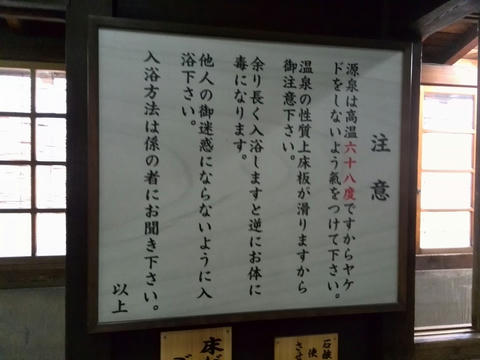 注意
源泉は高温六十八度ですからヤケ
ドをしないよう氣をつけて下さい。
温泉の性質上床板が滑りますから
御注意下さい。
余り長く入浴しますと逆にお体に
毒になります。
他人の御迷惑にならないように入
浴下さい。
入浴方法は係の者にお聞き下さい。
以上
床が
ご
石鹸
使
させ